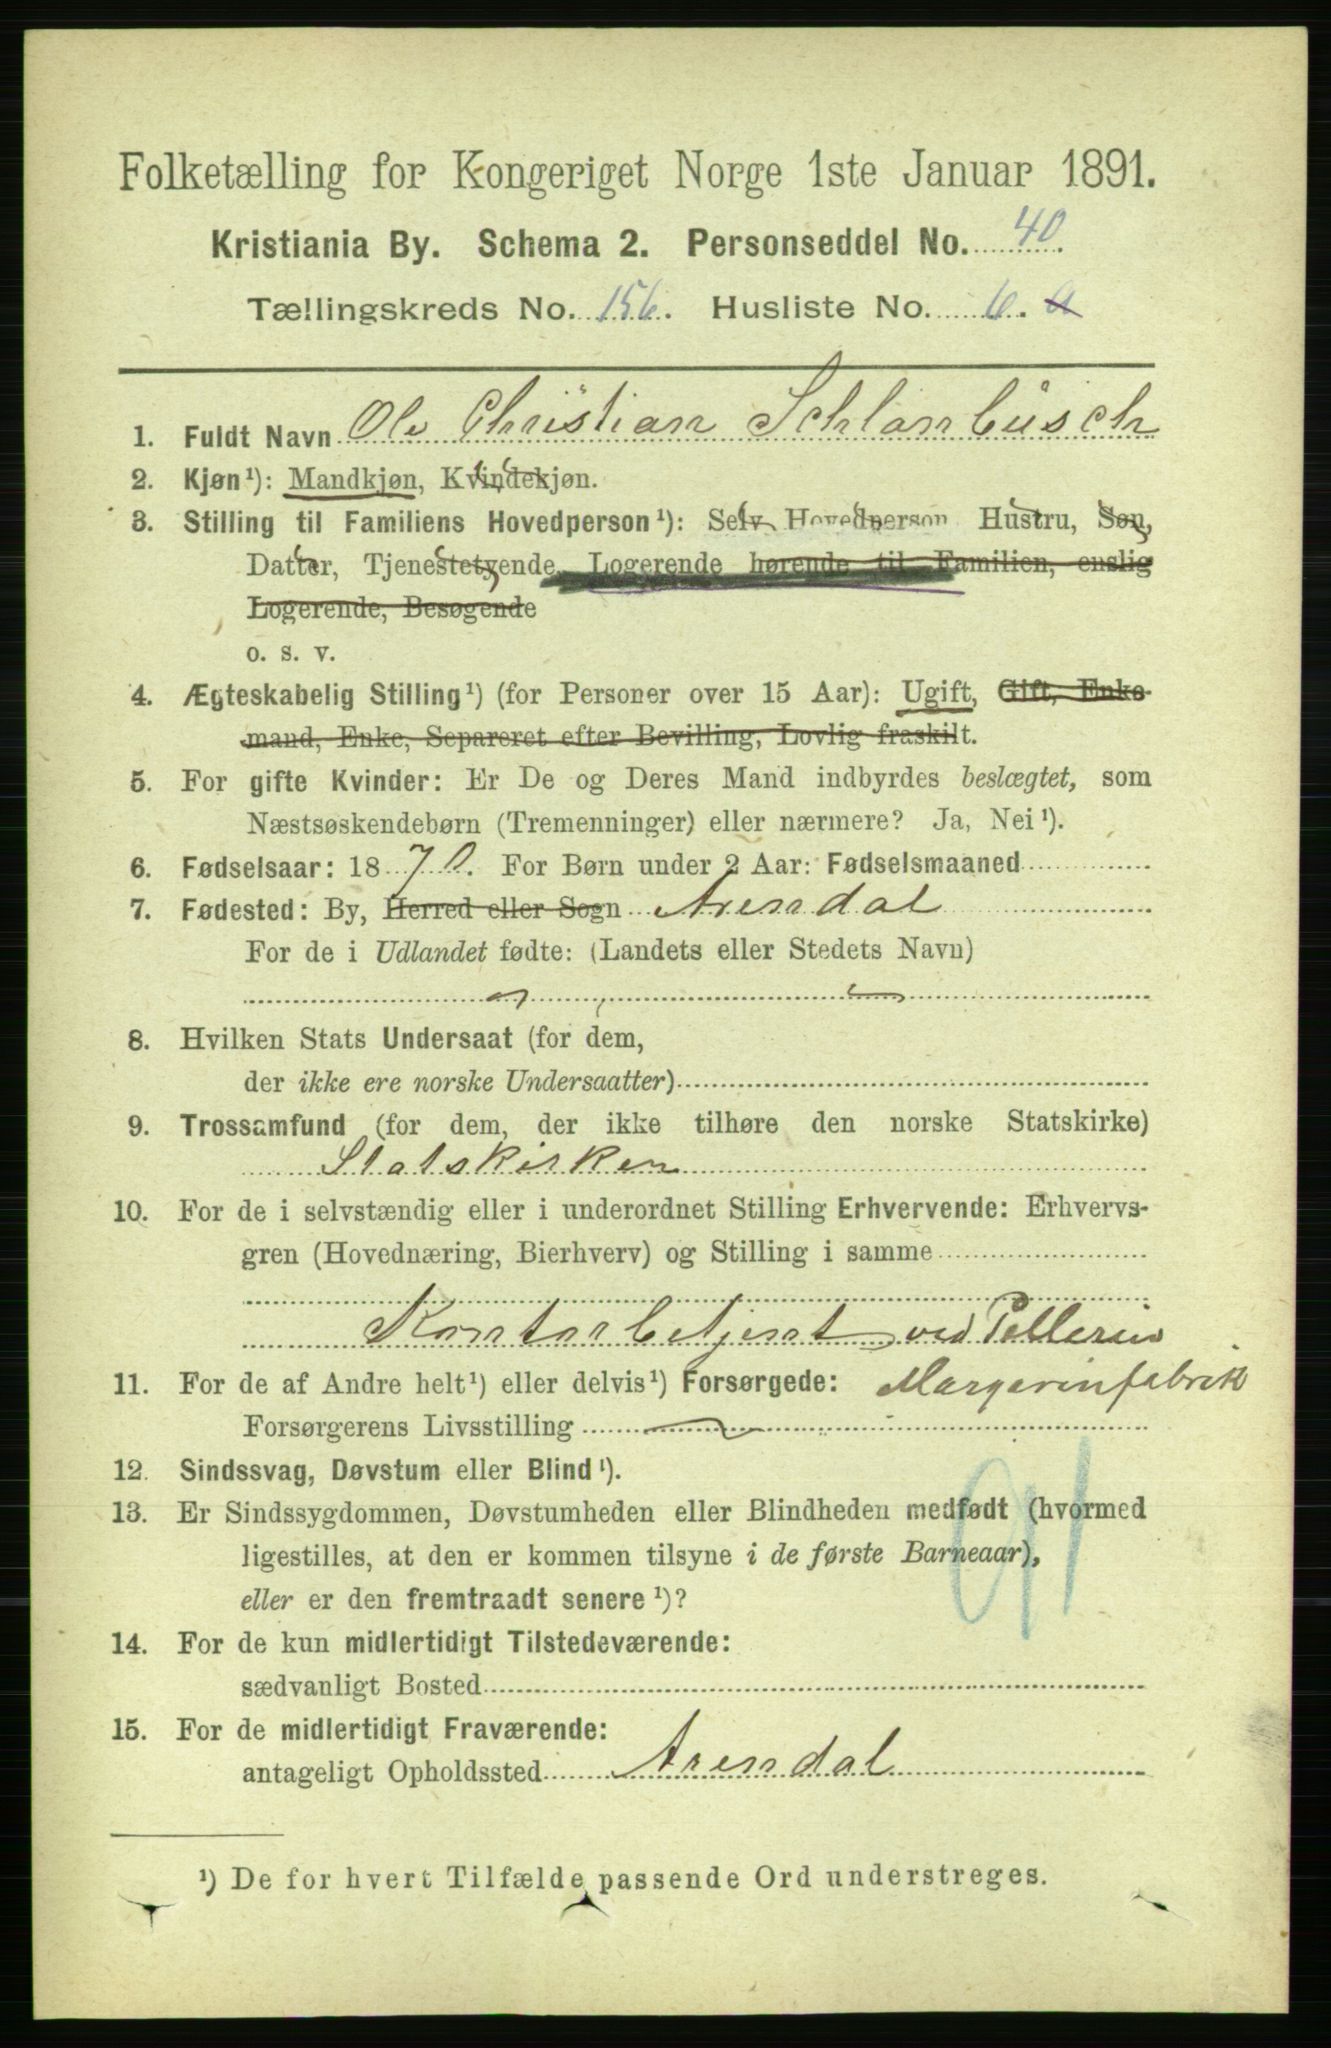 Folketælling for Kongeriget Norge 1ste Januar 1891.
Kristiania By. Schema 2. Personseddel No. 40.
Tællingskreds No. 156. Husliste No. 6. a
1. Fuldt Navn Ole Christian Schlanbusch
2. Kjøn¹): Mandkjøn, Kvindekjøn.
3. Stilling til Familiens Hovedperson¹): Selv Hovedperson Hustru, Søn,
Datter, Tjenestetyende, Logerende hørende til Familien, enslig
Logerende, Besøgende
o. s. v.
4. Ægteskabelig Stilling¹) (for Personer over 15 Aar): Ugift, Gift, Enke-
mand, Enke, Separeret efter Bevilling, Lovlig fraskilt.
5. For gifte Kvinder: Er De og Deres Mand indbyrdes beslægtet, som
Næstsøskendebørn (Tremenninger) eller nærmere? Ja, Nei¹).
6. Fødselsaar: 1870. For Børn under 2 Aar: Fødselsmaaned
7. Fødested: By, Herred eller Sogn Arendal
For de i Udlandet fødte: (Landets eller Stedets Navn)
8. Hvilken Stats Undersaat (for dem,
der ikke ere norske Undersaatter)
9. Trossamfund (for dem, der ikke tilhøre den norske Statskirke)
Statskirken
10. For de i selvstændig eller i underordnet Stilling Erhvervende: Erhvervs-
gren (Hovednæring, Bierhverv) og Stilling i samme
Kontorbetjent ved Pellerin
11. For de af Andre helt¹) eller delvis¹) Forsørgede: Margarinfabrik
Forsørgerens Livsstilling
12. Sindssvag, Døvstum eller Blind¹).
13. Er Sindssygdommen, Døvstumheden eller Blindheden medfødt (hvormed
ligestilles, at den er kommen tilsyne i de første Barneaar),
eller er den fremtraadt senere¹)?
91
14. For de kun midlertidigt Tilstedeværende:
sædvanligt Bosted
15. For de midlertidigt Fraværende:
antageligt Opholdssted Arendal
¹) De for hvert Tilfælde passende Ord understreges.